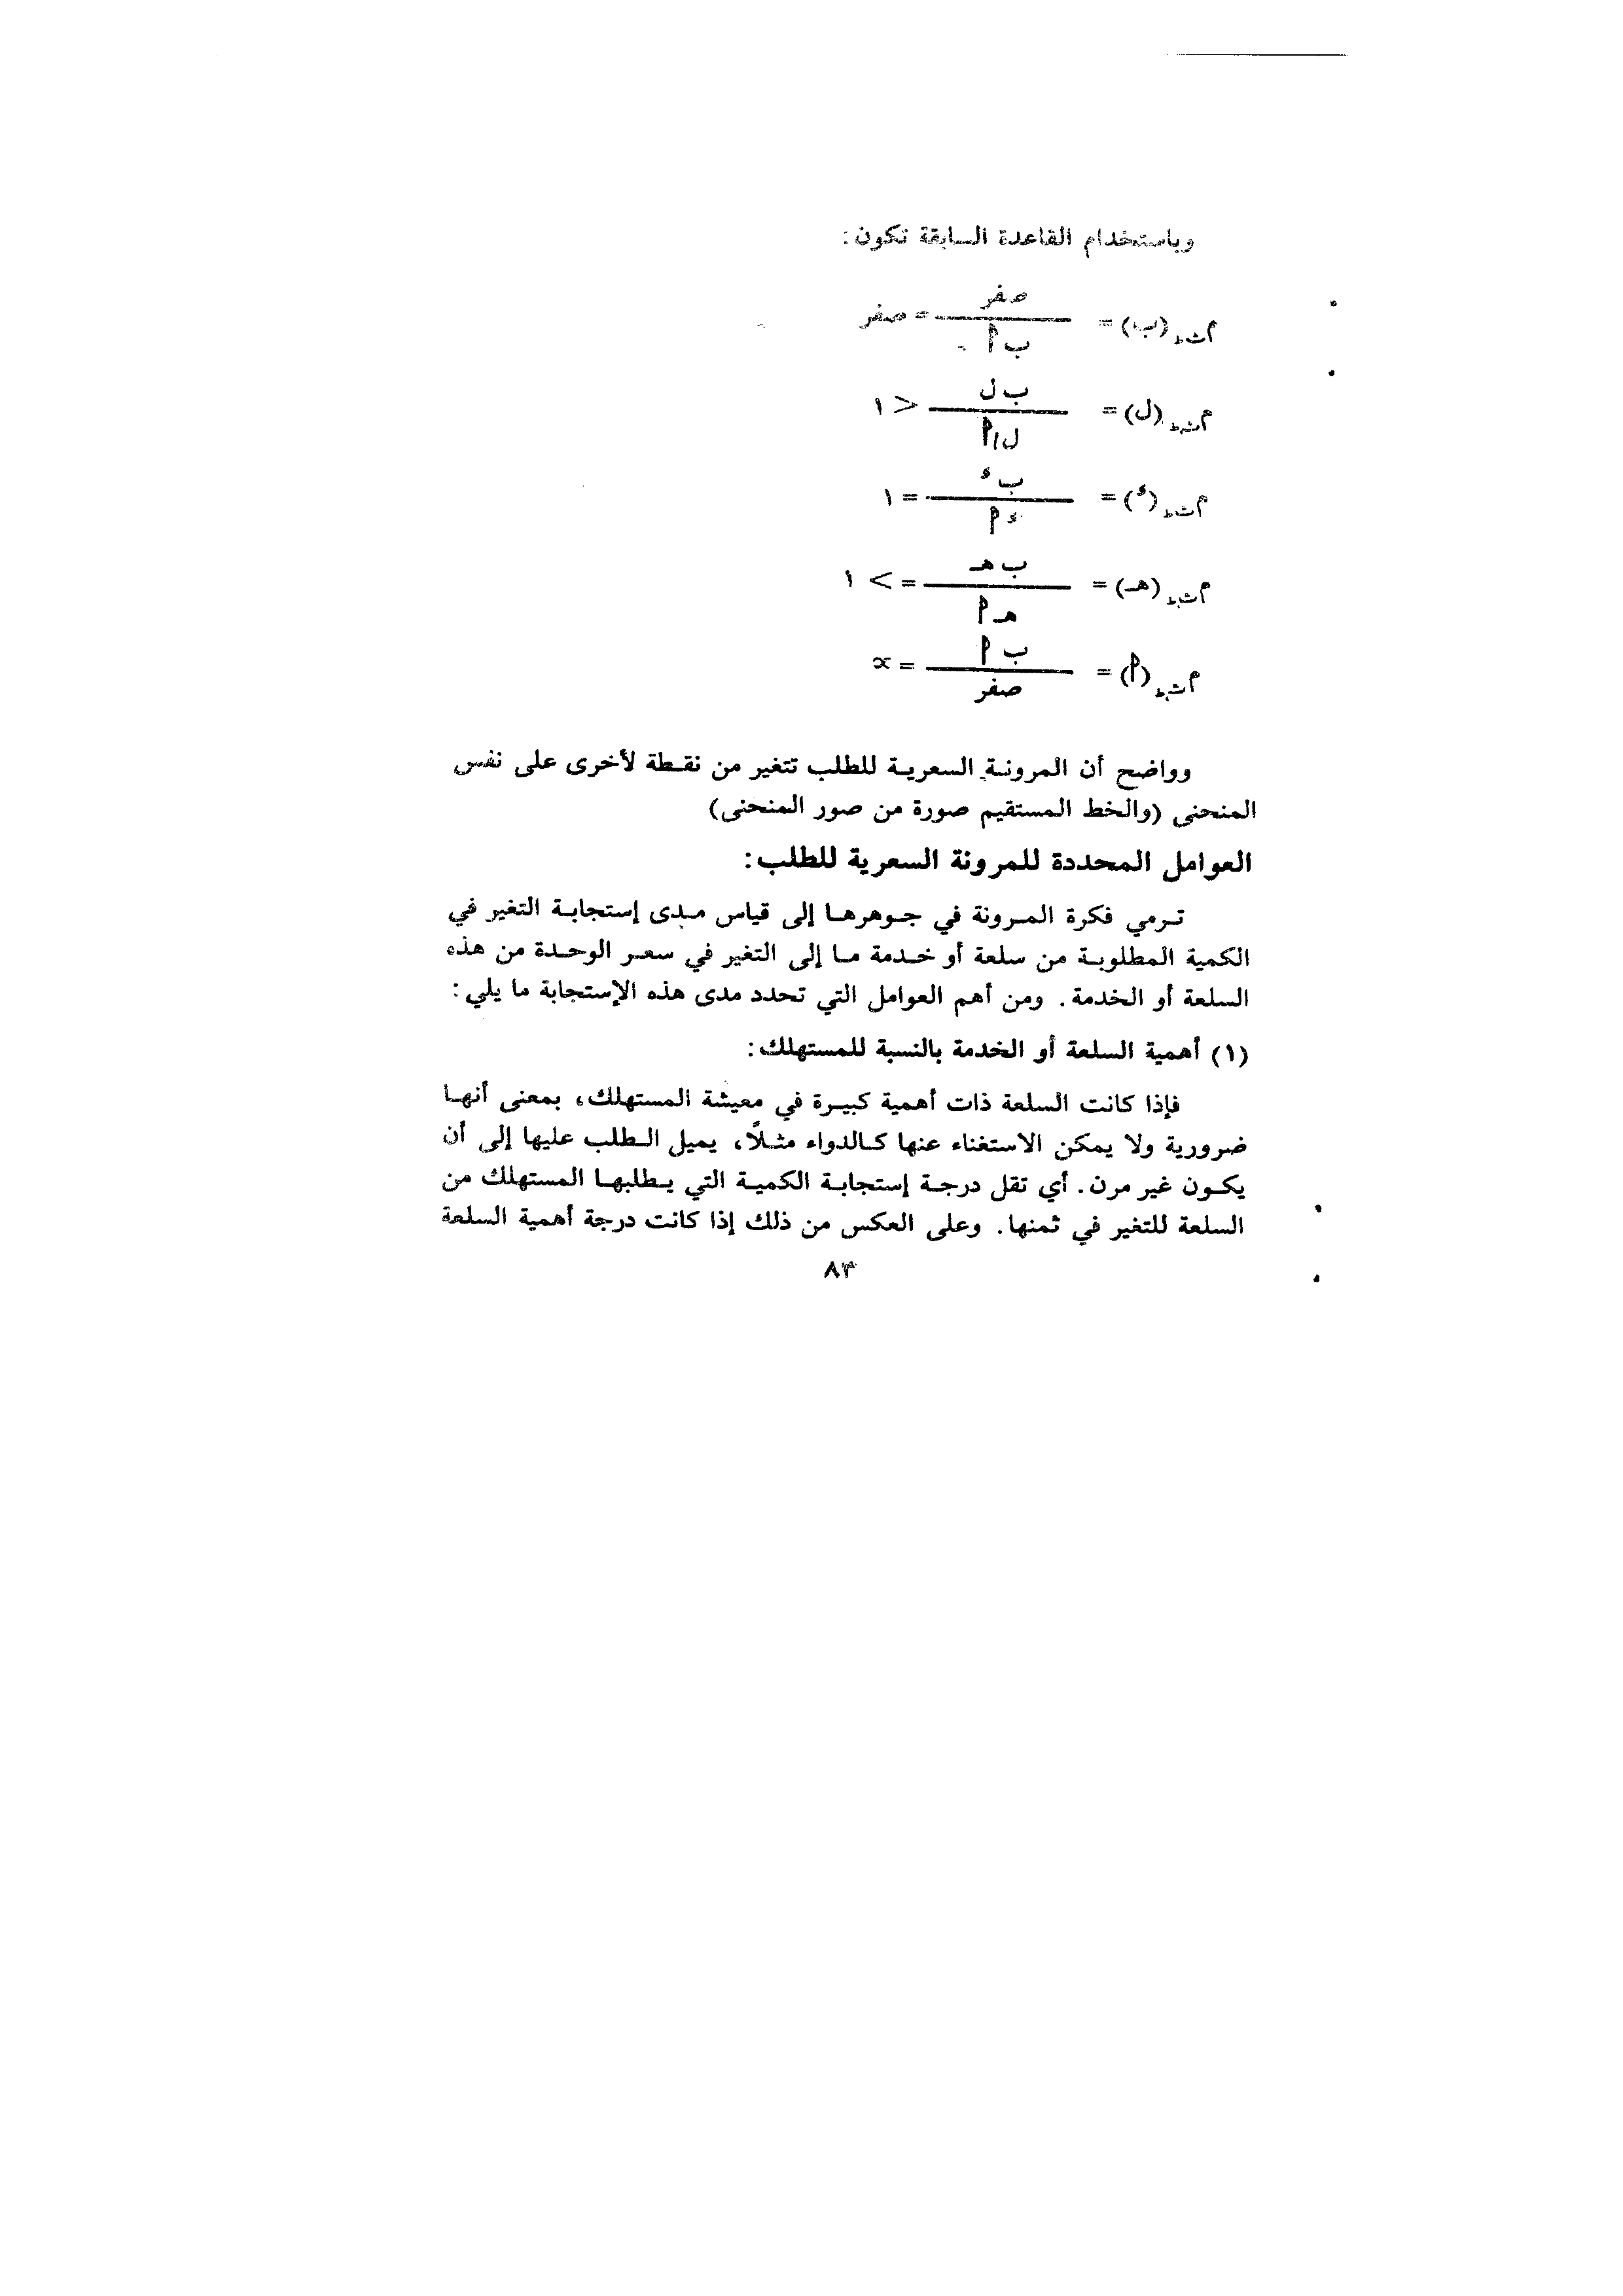 وباستخدام القاعدة السابقة تكون:
م ث ط (ب) = صفر / ب أ = صفر
م ث ط (ل) = ب ل / ل أ > ١
م ث ط (ء) = ب ء / ء أ = ١
م ث ط (هـ) = ب هـ / هـ أ = < ١
م ث ط (أ) = ب أ / صفر = ∝
وواضح أن المرونة السعرية للطلب تتغير من نقطة لأخرى على نفس
المنحنى (والخط المستقيم صورة من صور المنحنى)
العوامل المحددة للمرونة السعرية للطلب:
ترمي فكرة المرونة في جوهرها إلى قياس مدى إستجابة التغير في
الكمية المطلوبة من سلعة أو خدمة ما إلى التغير في سعر الوحدة من هذه
السلعة أو الخدمة. ومن أهم العوامل التي تحدد مدى هذه الإستجابة ما يلي:
(١) أهمية السلعة أو الخدمة بالنسبة للمستهلك:
فإذا كانت السلعة ذات أهمية كبيرة في معيشة المستهلك، بمعنى أنها
ضرورية ولا يمكن الاستغناء عنها كالدواء مثلًا، يميل الطلب عليها إلى أن
يكون غير مرن. أي تقل درجة إستجابة الكمية التي يطلبها المستهلك من
السلعة للتغير في ثمنها. وعلى العكس من ذلك إذا كانت درجة أهمية السلعة
٨٣